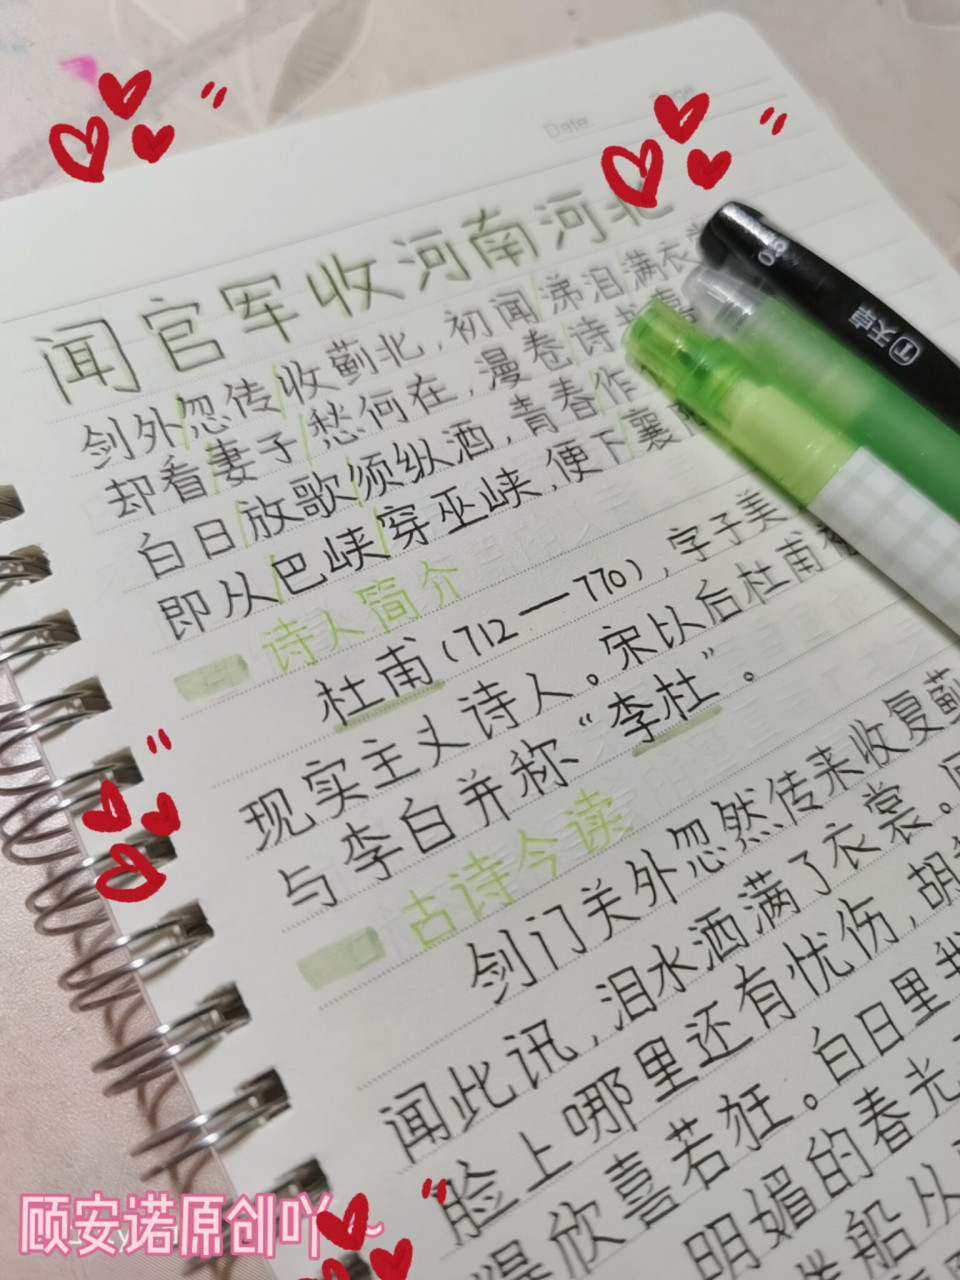 Date
闻官军收河南河北
剑外忽传收蓟北,初闻涕泪满衣
却看妻子愁何在,漫卷诗
白日放歌须纵酒,青春作
即从巴峡穿巫峡,便下襄
诗人简介
杜甫(712—770),字子美
现实主义诗人。宋以后杜甫被
与李白并称“李杜”。
古诗今读
剑门关外忽然传来收复蓟
闻此讯,泪水洒满了衣裳。
脸上哪里还有忧伤,胡
欣喜若狂。白日里我
明媚的春光
船从
0.5
天卓
顾安诺原创吖~